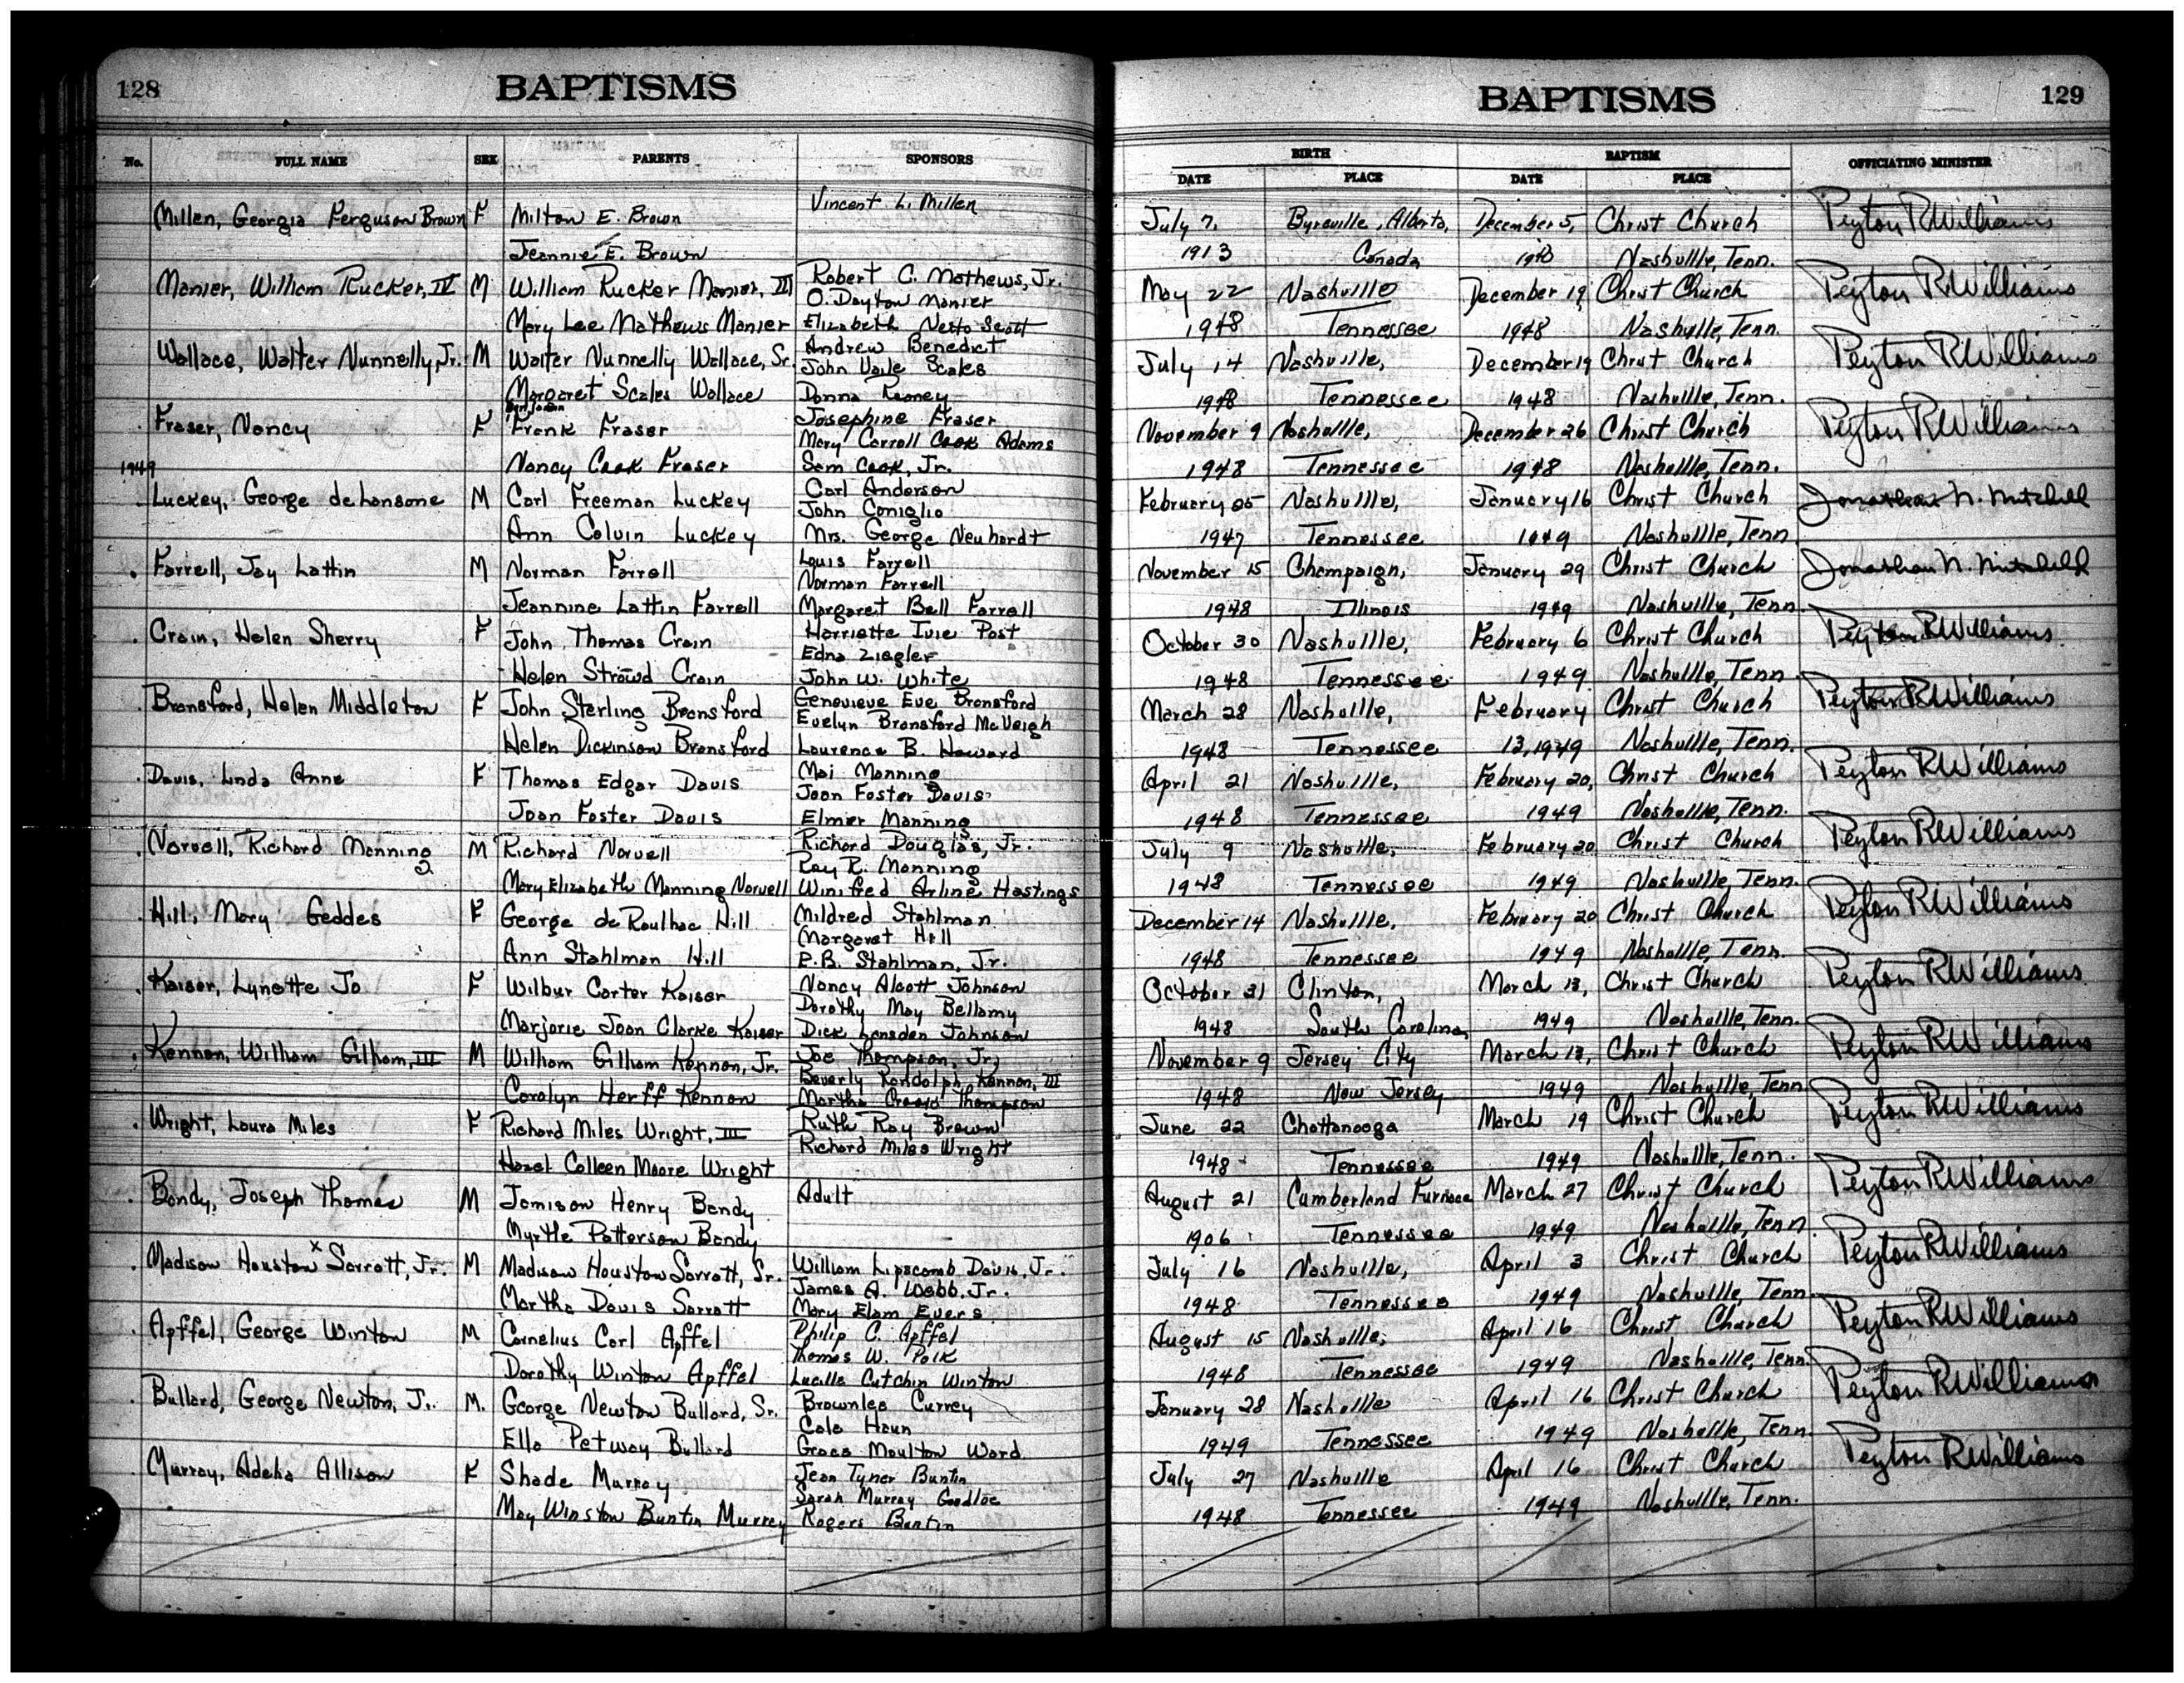 128
BAPTISMS
No. FULL NAME SEX PARENTS SPONSORS
Millen, Georgia Ferguson Brown F Milton E. Brown Vincent L. Millen
Jeannie E. Brown
Manier, William Rucker, IV M William Rucker Manier, III Robert C. Mathews, Jr.
O. Dayton Manier
Mary Lee Mathews Manier Elizabeth Scott
Wallace, Walter Nunnelly, Jr. M Walter Nunnelly Wallace, Sr. Andrew Benedict
John Vaile Scales
Margaret Scales Wallace Donna Keaney
Fraser, Nancy F Frank Fraser Josephine Fraser
Mary Carroll Cook Adams
1949 Nancy Cook Fraser Sam Cook, Jr.
Luckey, George M Carl Freeman Luckey Carl Anderson
John Coniglio
Ann Colvin Luckey Mrs. George Neuhardt
Farrell, Jay Lattin M Norman Farrell Louis Farrell
Norman Farrell
Jeannine Lattin Farrell Margaret Bell Farrell
Crain, Helen Sherry F John Thomas Crain Harriette Ivie Post
Edna Ziegler
Helen Strowd Crain John W. White
Bransford, Helen Middleton F John Sterling Bransford Genevieve Eve Bransford
Evelyn Bransford McVeigh
Helen Dickinson Bransford Laurence B. Howard
Davis, Linda Anne F Thomas Edgar Davis Mai Manning
Joan Foster Davis
Joan Foster Davis Elmier Manning
Norvell, Richard Manning M Richard Norvell Richard Douglas, Jr.
2 Ray R. Manning
Mary Elizabeth Manning Norvell Winifred Arline Hastings
Hill, Mary Geddes F George de Roulhac Hill Mildred Stahlman
Margaret Hill
Ann Stahlman Hill E.B. Stahlman, Jr.
Kaiser, Lynette Jo F Wilbur Carter Kaiser Nancy Alcott Johnson
Dorothy May Bellamy
Marjorie Joan Clarke Kaiser Dick Johnson
Kennon, William Gilham, III M William Gilham Kennon, Jr. Joe Thompson, Jr.
Beverly Randolph Kennon, III
Carolyn Herff Kennon Martha Thompson
Wright, Laura Miles F Richard Miles Wright, III Ruth Ray Brown
Richard Miles Wright
Hazel Colleen Moore Wright
Bandy, Joseph Thomas M Jamison Henry Bandy Adult
Myrtle Patterson Bandy
Madison Houston x Sarratt, Jr. M Madison Houston Sarratt, Sr. William Lipscomb Davis, Jr.
James A. Webb, Jr.
Martha Davis Sarratt Mary Elam Evers
Apffel, George Winton M Cornelius Carl Apffel Philip C. Apffel
Thomas W. Polk
Dorothy Winton Apffel Lucille Cutchin Winton
Bullard, George Newton, Jr. M. George Newton Bullard, Sr. Brownlee Currey
Cale Haun
Ella Petway Bullard Grace Moulton Ward
Murray, Adelia Allison F Shade Murray Jean Tyner Buntin
Sarah Murray Goodloe
May Winston Buntin Murrey Rogers Buntin
BAPTISMS
129
BIRTH BAPTISM OFFICIATING MINISTER
DATE PLACE DATE PLACE
July 7, Alberta, December 5, Christ Church Peyton R Williams
1913 Canada 1948 Nashville, Tenn.
May 22 Nashville December 19 Christ Church Peyton R Williams
1948 Tennessee 1948 Nashville, Tenn.
July 14 Nashville, December 19 Christ Church Peyton R Williams
1948 Tennessee 1948 Nashville, Tenn.
November 9 Nashville, December 26 Christ Church Peyton R Williams
1948 Tennessee 1948 Nashville, Tenn.
February 25 Nashville, January 16 Christ Church Jonathan N. Mitchell
1947 Tennessee 1949 Nashville, Tenn
November 15 Champaign, January 29 Christ Church Jonathan N. Mitchell
1948 Illinois 1949 Nashville, Tenn.
October 30 Nashville, February 6 Christ Church Peyton R Williams
1948 Tennessee 1949 Nashville, Tenn.
March 28 Nashville, February Christ Church Peyton R Williams
1948 Tennessee 13, 1949 Nashville, Tenn.
April 21 Nashville, February 20, Christ Church Peyton R Williams
1948 Tennessee 1949 Nashville, Tenn.
July 9 Nashville, February 20 Christ Church Peyton R Williams
1948 Tennessee 1949 Nashville, Tenn.
December 14 Nashville, February 20 Christ Church Peyton R Williams
1948 Tennessee 1949 Nashville, Tenn.
October 31 Clinton, March 13, Christ Church Peyton R Williams
1948 South Carolina 1949 Nashville, Tenn.
November 9 Jersey City March 13, Christ Church Peyton R Williams
1948 New Jersey 1949 Nashville, Tenn
June 22 Chattanooga March 19 Christ Church Peyton R Williams
1948 Tennessee 1949 Nashville, Tenn.
August 21 Cumberland Furnace March 27 Christ Church Peyton R Williams
1906 Tennessee 1949 Nashville, Tenn
July 16 Nashville, April 3 Christ Church Peyton R Williams
1948 Tennessee 1949 Nashville, Tenn.
August 15 Nashville, April 16 Christ Church Peyton R Williams
1948 Tennessee 1949 Nashville, Tenn.
January 28 Nashville April 16 Christ Church Peyton R Williams
1949 Tennessee 1949 Nashville, Tenn.
July 27 Nashville April 16 Christ Church Peyton R Williams
1948 Tennessee 1949 Nashville, Tenn.